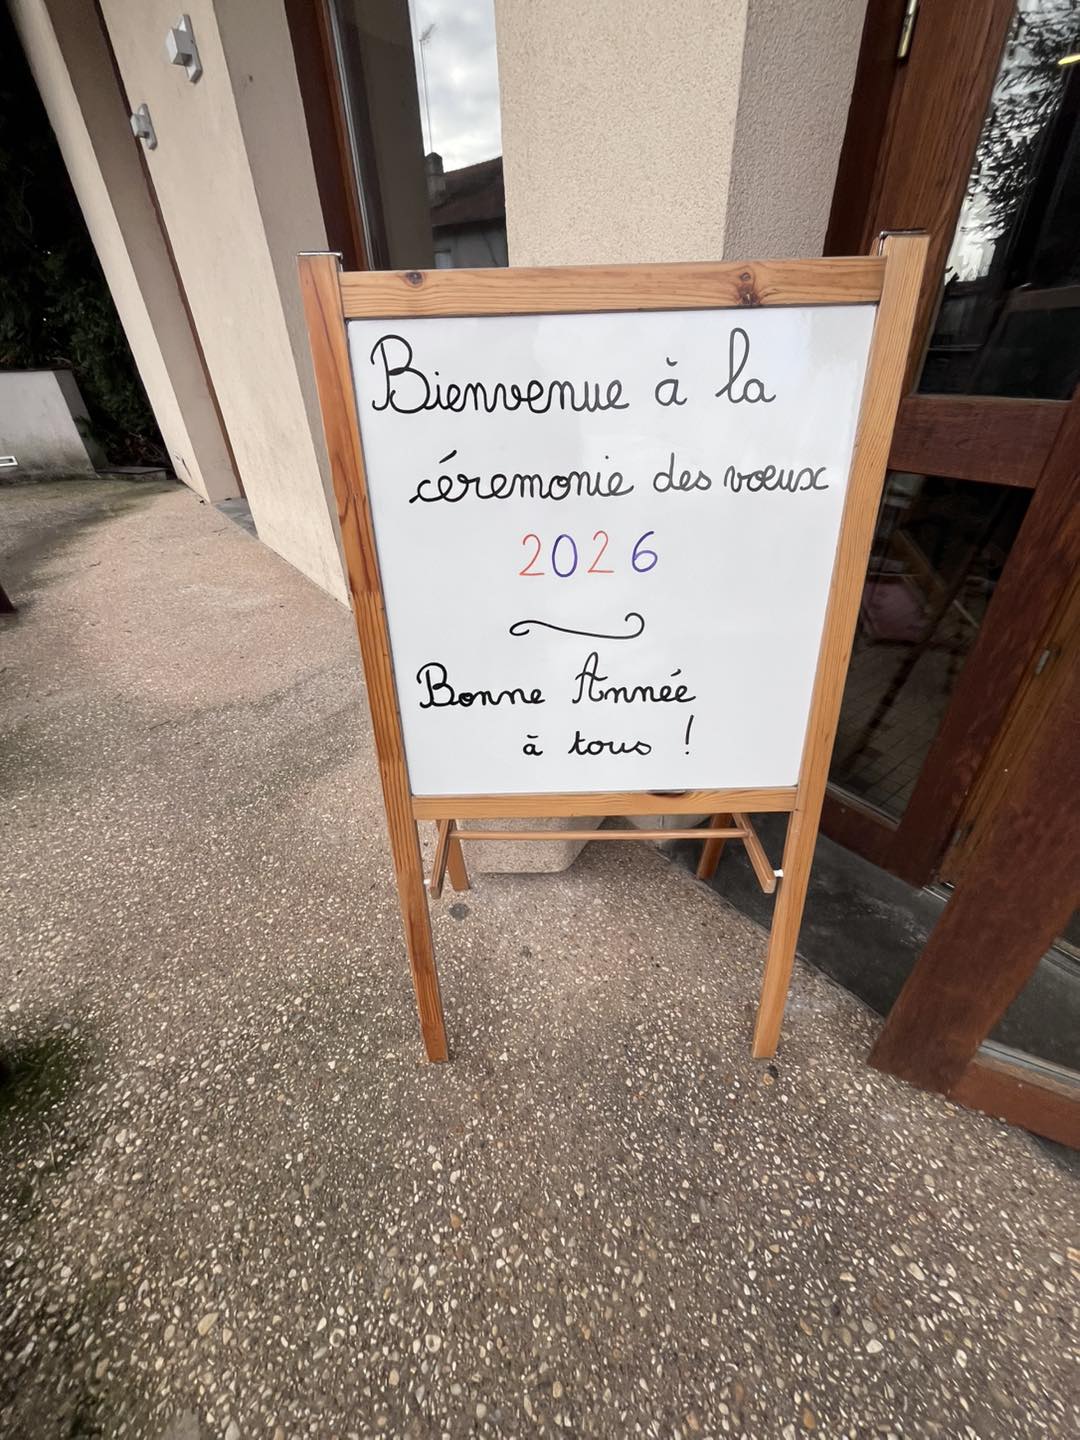 Bienvenue à la
céremonie des vœux
2026
Bonne Année
à tous !